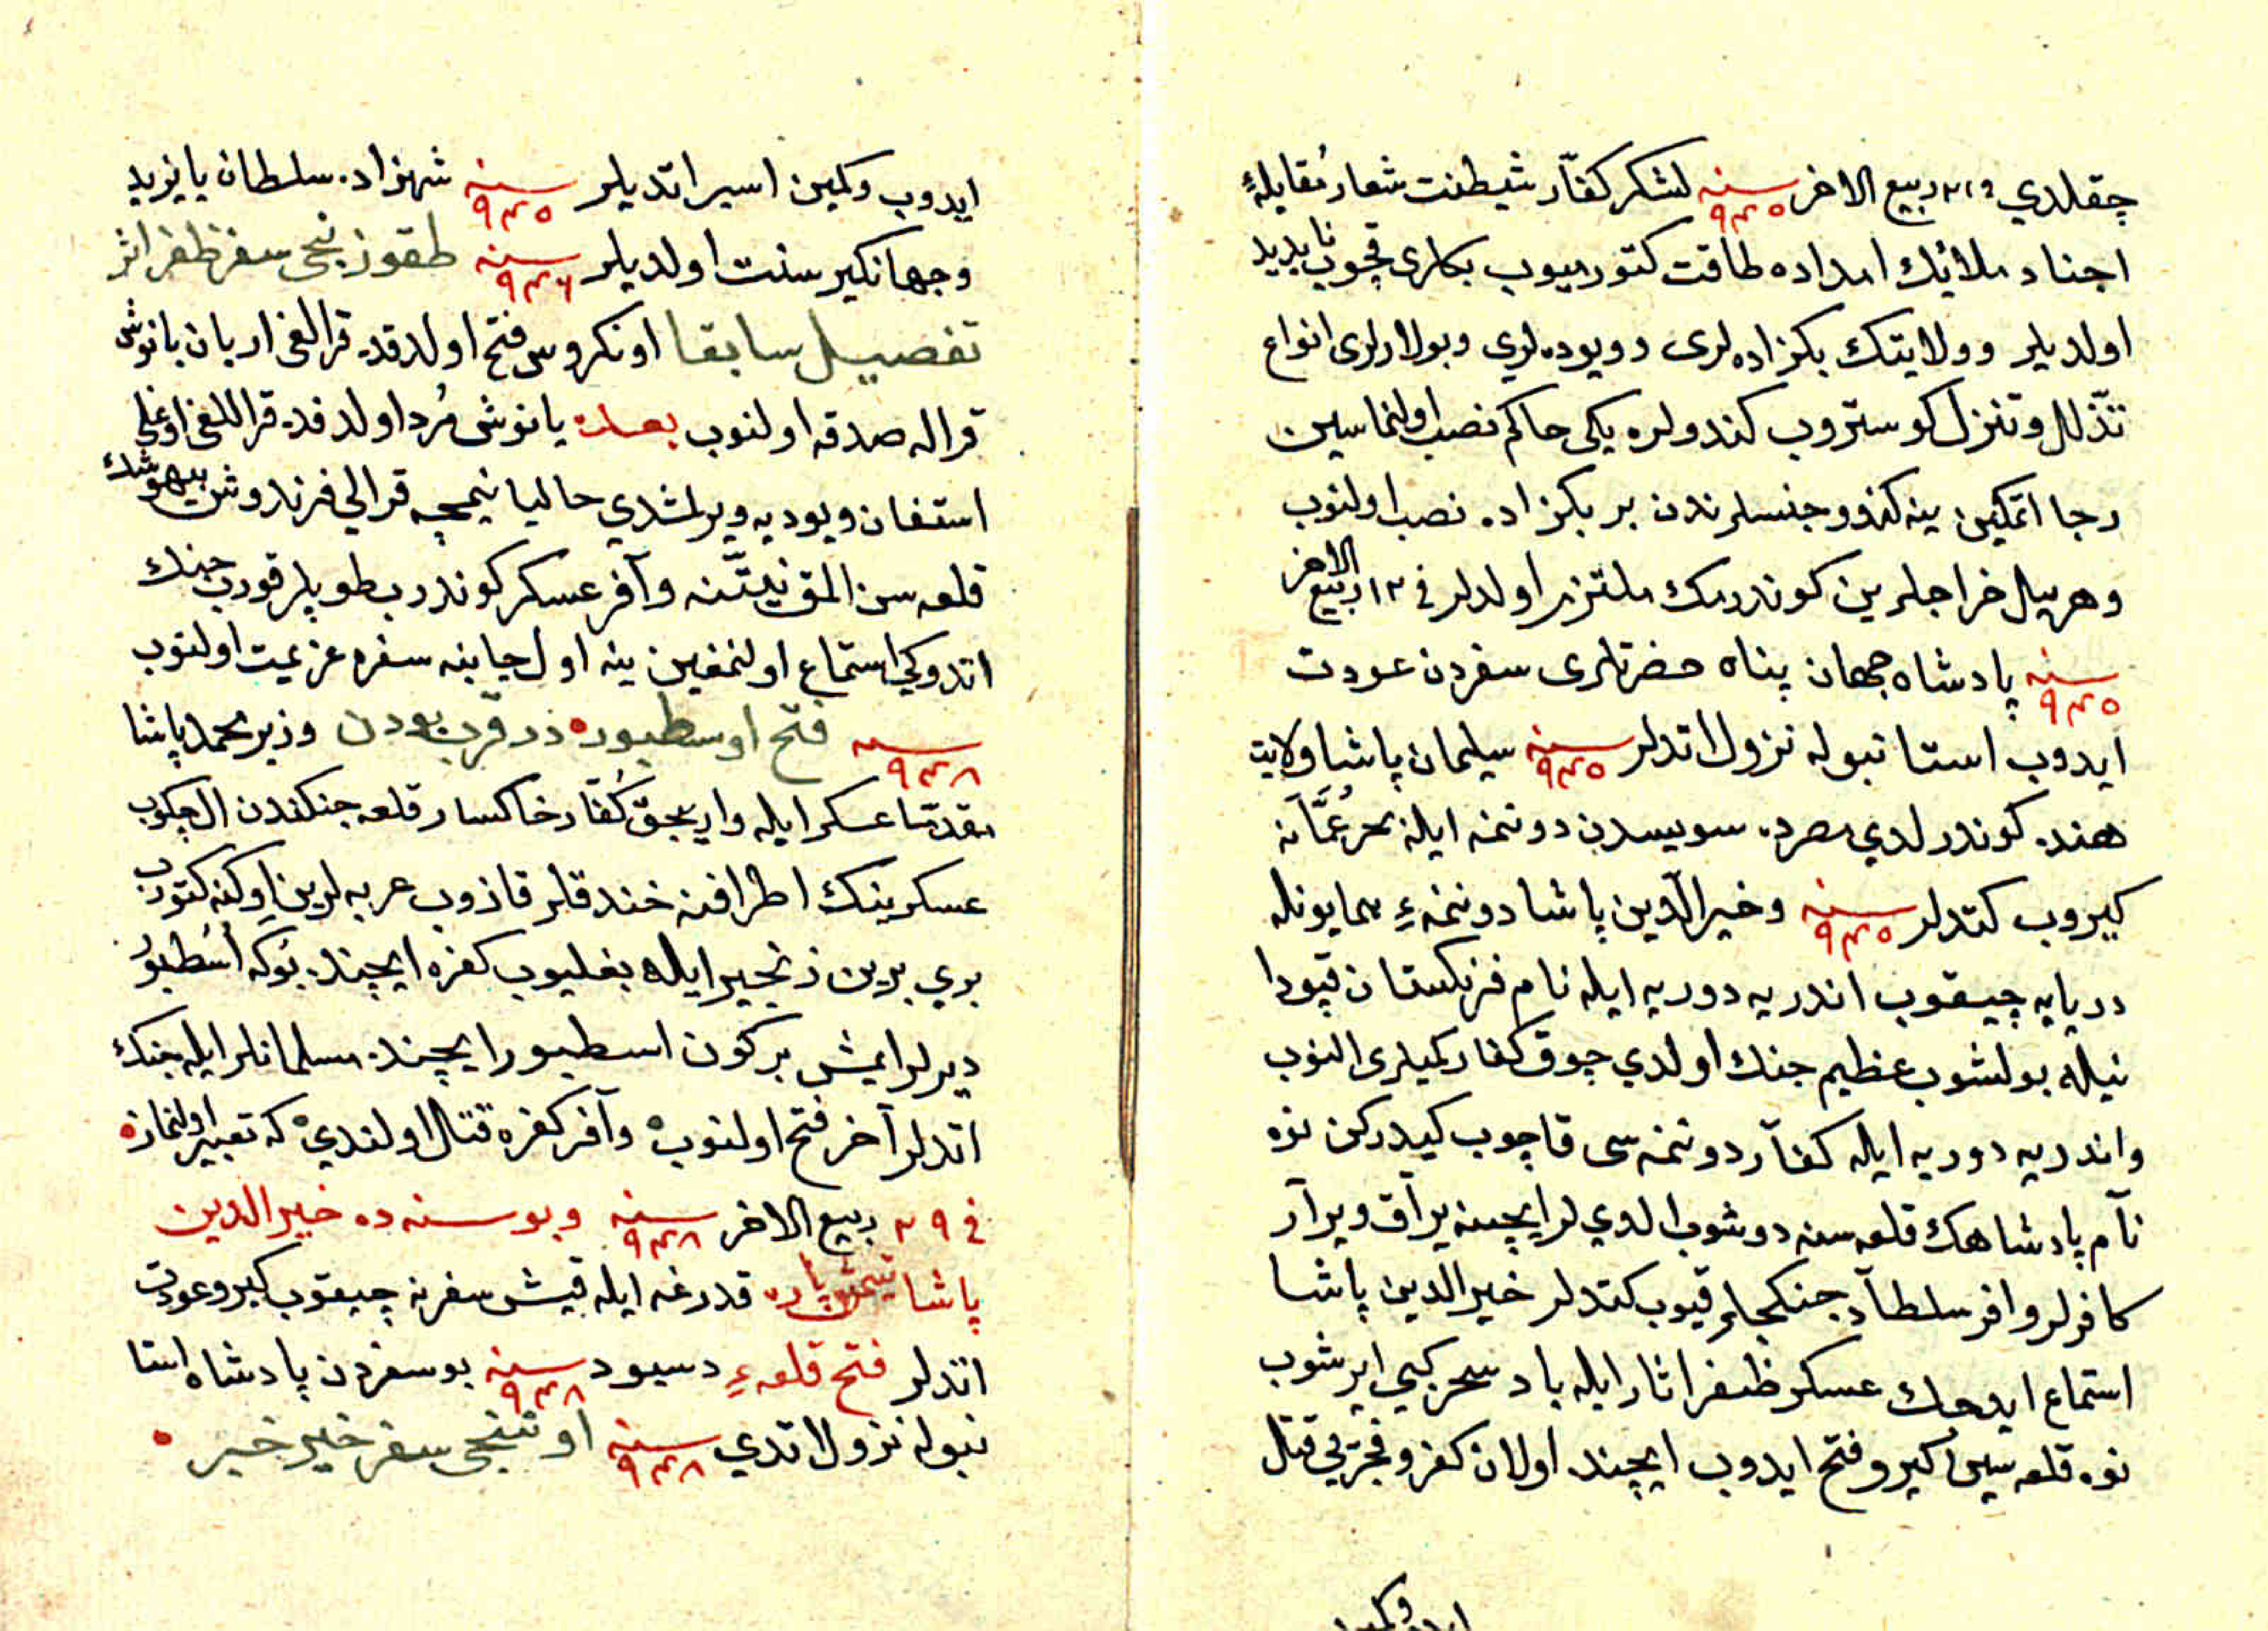 چقلدي ربيع الاخر سنه ۹۴۵ لشكر كفّار شيطنت شعار مُقابلهٔ
اجناد ملائك امداده طاقت كتورميوب بكلرى قچوب ناپديد
اولديلر وولايتك بكزاده لرى وويوده لري وبولارلرى انواع
تذّلل وتنزل كوستروب كندولره يكى حاكم نصب اولنماسين
رجا اتمكين ينه كندو جنسلرندن بر بكزاده نصب اولنوب
وهر ييل خراجلرين كوندرمك ملتزم اولدلر في ۱۳ ربيع الاخر
سنه ۹۴۵ پادشاه جهان پناه حضرتلرى سفردن عودت
ايدوب استانبوله نزول اتدلر سنه ۹۴۵ سليمان پاشا ولايت
هنده كوندرلدي مصرده سويسدن دوننمه ايله بحر عُمَّانه
كيروب كتدلر سنه ۹۴۵ وخير الدّين پاشا دوننمهٔ همايونله
دريايه چيقوب اندريه دوريه ايله نام فرنكستان قپودا
نيله بولشوب عظيم جنك اولدي چوق كفار كميلرى النوب
واندريه دوريه ايله كفّار دوننمه سى قاچوب كيدركن نوه
نام پادشاهك قلعه سنه دوشوب الدي لر ايچينه يراق ويرار
كافرلر وافر سلطاد جنكجلر قيوب كتدلر خير الدين پاشا
استماع ايدجك عسكر ظفر اثار ايله باد سحر كبي ايرشوب
نوه قلعه سين كيرو فتح ايدوب ايچنده اولان كفره وفجره يي قتال
ايدوب وكمين
ايدوب وكمين اسير اتديلر سنه ۹۴۵ شهزاده سلطان بايزيد
وجهانكير سنت اولديلر سنه ۹۴۶ طقوزنجى سفر ظفر اثر
تفصيل سابقا اونكروس فتح اولدقده قراللغى اردبان يانوش
قراله صدقه اولنوب بعده يانوش مُرد اولدقده قراللغى اوغلى
استفان ويوديه ويرلمشدي حاليا نيمچه قرالي فرندوش بيهوشك
قلعه سن المق نيّتنه وآفر عسكر كوندروب طوپلر قوروب جنك
اتدوكي استماع اولنمغين ينه اول جانبه سفره عزيمت اولنوب
سنه ۹۴۸ فتح اوسطبور در قرب بودن وزير محمد پاشا
مقدمّا عسكر ايله واريجق كُفّار خاكسار قلعه جنكندن ال چكوب
عسكرينك اطرافنه خندقلر قازوب عربه لرين اوكنه كتوروب
بري برين زنجير ايله بغليوب كفره ايچنده بوكه اُسْطبور
ديرلر ايمش بر كون اسطبور ايچنده مسلمانلر ايله جنك
اتدلر آخر فتح اولنوب وآفر كفره قتال اولندي كه تعبير اولنماز
في ۲۹ ربيع الاخر سنه ۹۴۸ وبو سنه ده خير الدين
پاشا يتمش پاره قدرغه ايله قيش سفرنه چيقوب كيرو عودت
اتدلر فتح قلعهٔ دسيود سنه ۹۴۸ بو سفردن پادشاه استا
نبوله نزول اتدي سنه ۹۴۸ اوننجى سفر خير خبر